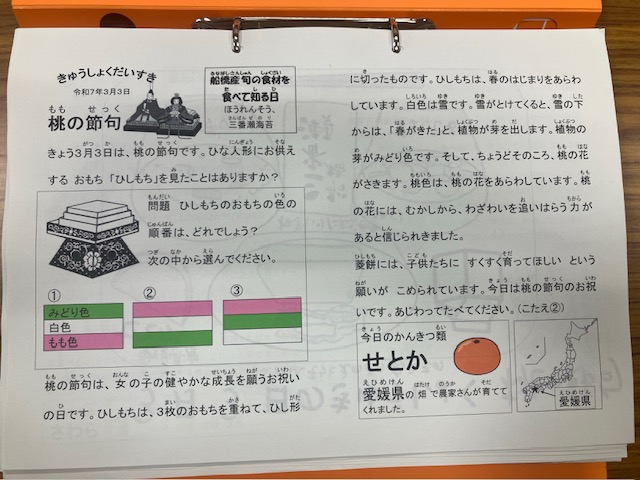 きゅうしょくだいすき
令和7年3月3日
桃の節句
船橋産旬の食材を
食べて知る日
ほうれんそう、
三番瀬海苔
きょう3月3日は、桃の節句です。ひな人形にお供え
する おもち「ひしもち」を見たことはありますか?
問題 ひしもちのおもちの色の
順番は、どれでしょう?
次の中から選んでください。
① ② ③
みどり色
白色
もも色
桃の節句は、女の子の健やかな成長を願うお祝い
の日です。ひしもちは、3枚のおもちを重ねて、ひし形
に切ったものです。ひしもちは、春のはじまりをあらわ
しています。白色は雪です。雪がとけてくると、雪の下
からは、「春がきた」と、植物が芽を出します。植物の
芽がみどり色です。そして、ちょうどそのころ、桃の花
がさきます。桃色は、桃の花をあらわしています。桃
の花には、むかしから、わざわいを追いはらう力が
あると信じられきました。
菱餅には、子供たちに すくすく育ってほしい という
願いが こめられています。今日は桃の節句のお祝
いです。あじわってたべてください。(こたえ②)
今日のかんきつ類
せとか
愛媛県の 畑で農家さんが育てて
くれました。
愛媛県